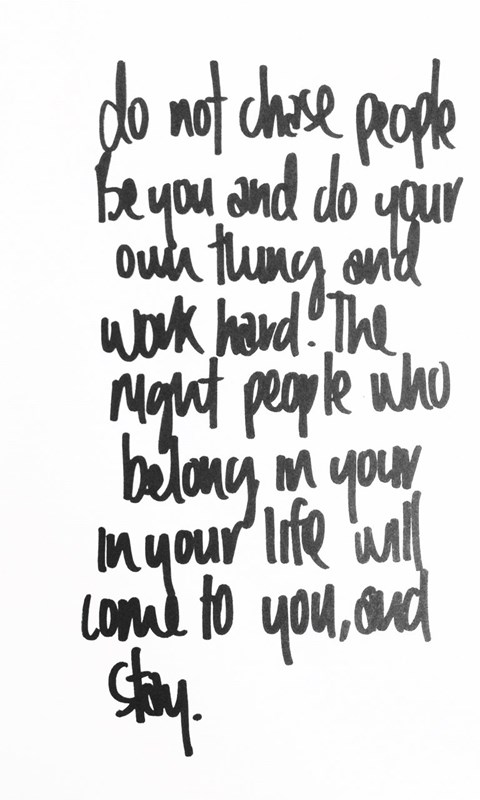 do not chase people
Be you and do your
own thing and
work hard. The
right people who
belong in your
in your life will
come to you, and
stay.